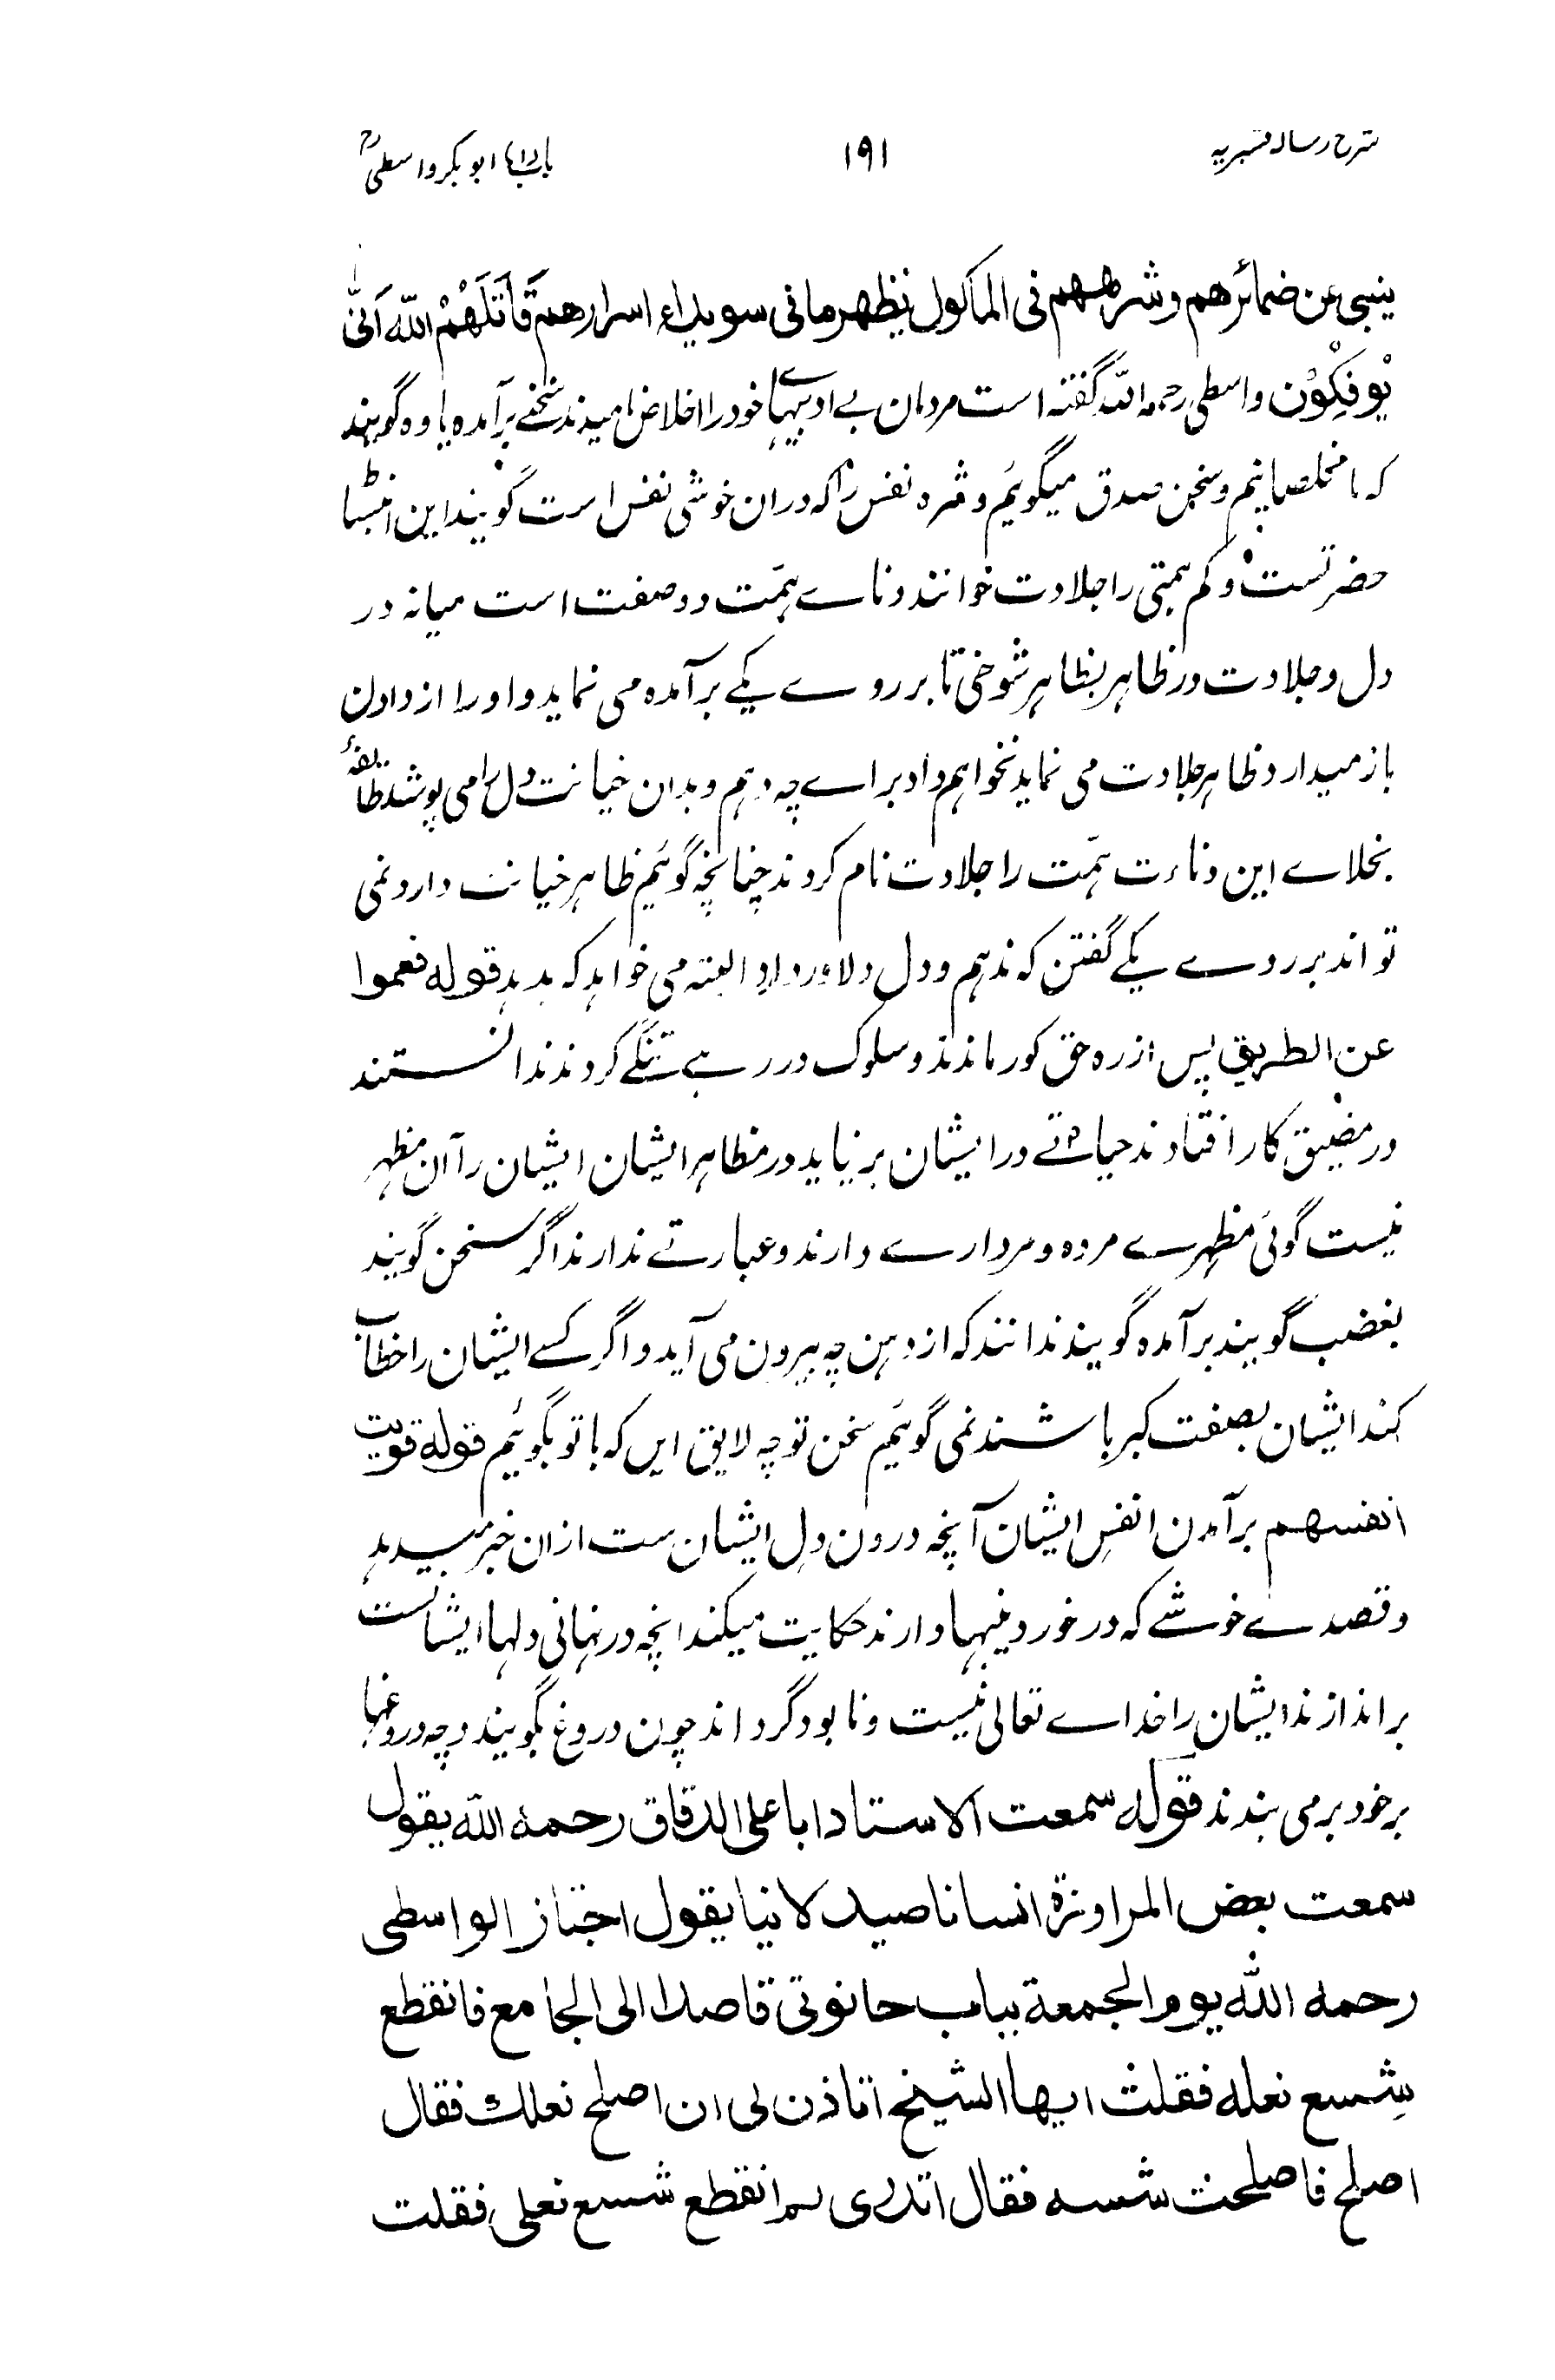 شرح رسالہ قشیریہ ۱۹۱ باب(۱۵) ابو بکر واسطیؒ
ینبی عن ضمائرهم وشرههم فی الماکول یظهر ما فی سویداء اسرارهم قَاتَلَهُمْ اللّٰه اَنّٰی
یُوفِکُوْن واسطی رحمہ اللّٰہ گفتہ است مردمان بے ادبیہاے خود را اخلاص نامیدند سخنے برآمدہ یاوہ گویند
کہ ما مخلصانیم و سخن صدق میگوئیم و شرہ نفس را کہ دران خوشی نفس است گویند این انبساط
حضرتست و کم ہمتی را جلادت خوانند دناے ہمّت دو صفت است میانہ در
دل و جلادت در ظاہر بظاہر شوخی تا بر روے یکے برآمدہ می نماید و او را از دادن
باز میدارد ظاہر جلادت می نماید نخواہم داد براے چہ دہم و بدان خیانت دل را می پوشد طائفۂ
بخلاے این دناءت ہمّت را جلادت نام کردند چنانچہ گوئیم ظاہر خیانت دارد نمی
تواند بر روے یکے گفتن کہ ندہم و دل دلاور دارد البتہ می خواہد کہ بدہد قوله فعموا
عن الطریق پس از رہ حق کور ماندند و سلوک در رہے تنگے کردند ندانستند
در مضیق کار افتادند حیاتے در ایشان برنیاید در مظاہر ایشان ایشان را آن مظہر
نیست گوئی مظہرے مردہ و مردارے دارند و عبارتے ندارند اگر سخن گویند
بغضب گویند برآمدہ گویند ندانند کہ از دہن چہ بیرون می آید و اگر کسے ایشان را خطاب
کند ایشان بصفت کبر باشند نمی گوئیم سخن تو چہ لایق ایں کہ با تو بگوئیم قوله قویت
انفسهم برآمدن انفس ایشان آنچہ درون دل ایشان ست ازان خبر میدہد
و قصدے خوشے کہ در خوردنیہا دارند حکایت میکند انچہ در نہانی دلہا ایشانست
براندازند ایشان را خداے تعالی نیست و نابود گرداند چون دروغ بگویند و چہ دروغہا
بر خود بر می بندند قوله سمعت الاستاد ابا علی الدقاق رحمه اللّٰه یقول
سمعت بعض المراوزة انسانا صیدلانیا یقول اجتاز الواسطی
رحمه اللّٰه یوم الجمعة بباب حانوتی قاصدا الی الجامع فانقطع
شِسع نعله فقلت ایها الشیخ اتاذن لی ان اصلح نعلك فقال
اصلح فاصلحت شسه فقال اتدری لم انقطع شسع نعلی فقلت